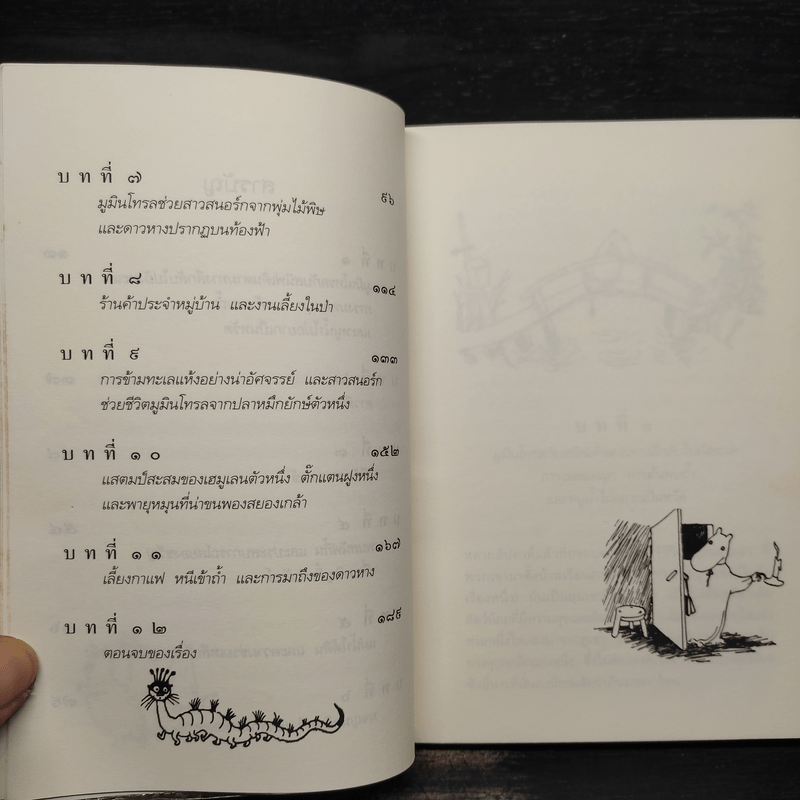 บทที่ ๗
๙๖
มูมินโทรลช่วยสาวสนอร์กจากพุ่มไม้พิษ
และดาวหางปรากฏบนท้องฟ้า
บทที่ ๘
๑๑๔
ร้านค้าประจำหมู่บ้าน และงานเลี้ยงในป่า
บทที่ ๙
๑๓๓
การข้ามทะเลแห้งอย่างน่าอัศจรรย์ และสาวสนอร์ก
ช่วยชีวิตมูมินโทรลจากปลาหมึกยักษ์ตัวหนึ่ง
บทที่ ๑๐
๑๕๒
แสตมป์สะสมของเฮมูเลนตัวหนึ่ง ตั๊กแตนฝูงหนึ่ง
และพายุหมุนที่น่าขนพองสยองเกล้า
บทที่ ๑๑
๑๖๗
เลี้ยงกาแฟ หนีเข้าถ้ำ และการมาถึงของดาวหาง
บทที่ ๑๒
๑๘๙
ตอนจบของเรื่อง